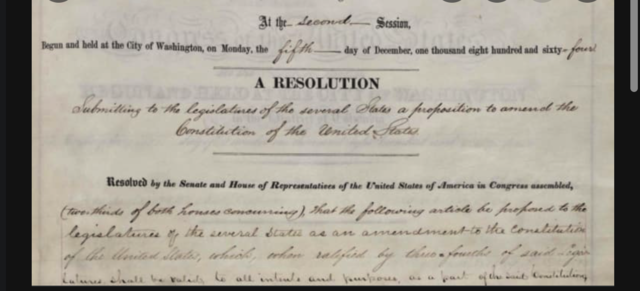 At the second Session,
Begun and held at the City of Washington, on Monday, the fifth day of December, one thousand eight hundred and sixty-four
A RESOLUTION
Submitting to the legislatures of the several States a proposition to amend the
Constitution of the United States.
Resolved by the Senate and House of Representatives of the United States of America in Congress assembled,
(two-thirds of both houses concurring), That the following article be proposed to the
legislatures of the several States as an amendment to the Constitution
of the United States, which, when ratified by three-fourths of said Legis
latures, shall be valid, to all intents and purposes, as a part of the said Constitution,